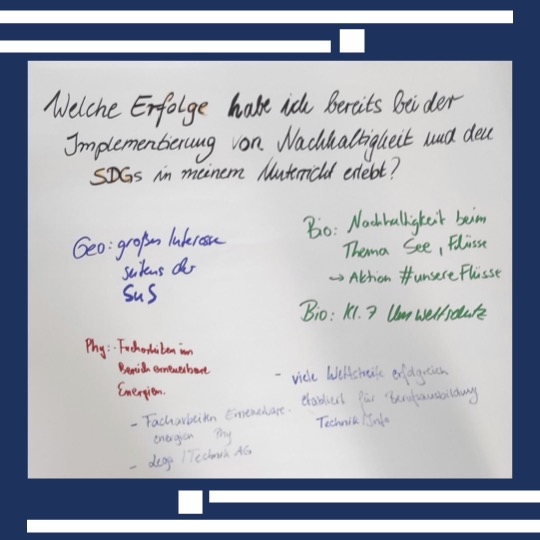 Welche Erfolge habe ich bereits bei der
Implementierung von Nachhaltigkeit und den
SDGs in meinem Unterricht erlebt?
Geo: großes Interesse
seitens der
SuS
Bio: Nachhaltigkeit beim
Thema See, Flüsse
→ Aktion #unsereFlüsse
Bio: Kl. 7 Umweltschutz
Phy: Facharbeiten im
Bereich erneuerbare
Energien.
- Facharbeiten Erneuerbare
energien Phy
- Lego / Technik AG
- viele Wettstreite erfolgreich
etabliert für Berufsausbildung
Technik/Info